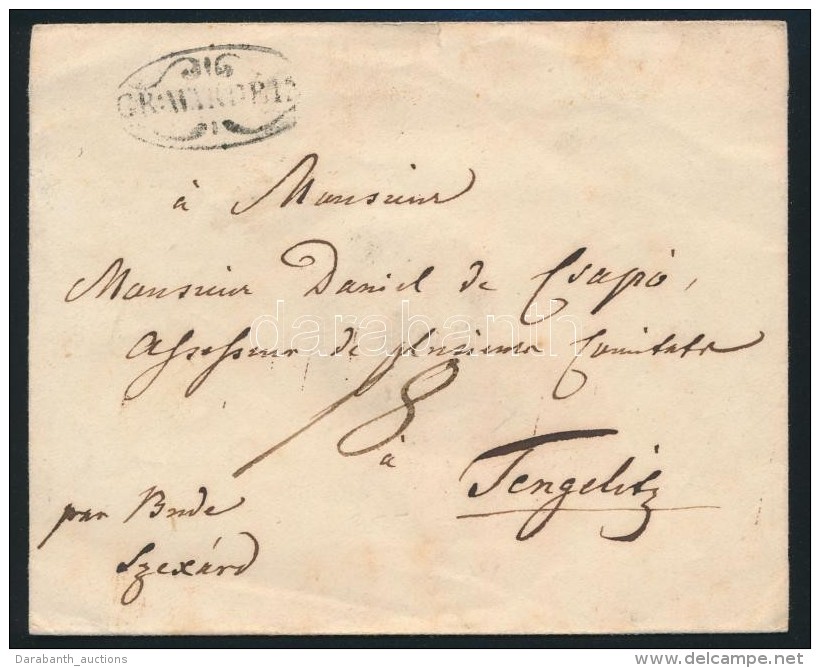 GR:WARDEIN
à Monsieur
Monsieur Daniel de Csapó,
Assesseur de plusieurs Comitats
18
à Tengelitz
par Bude
Szexárd
darabanth
Darabanth_auctions
delcampe.net